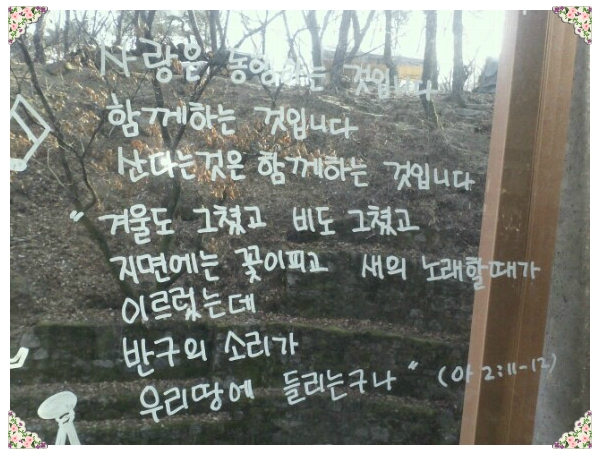 사랑은 동행하는 것입니다
함께하는 것입니다
산다는것은 함께하는 것입니다
"겨울도 그쳤고 비도 그쳤고
지면에는 꽃이피고 새의 노래할때가
이르렀는데
반구의 소리가
우리땅에 들리는구나" (아 2:11-12)